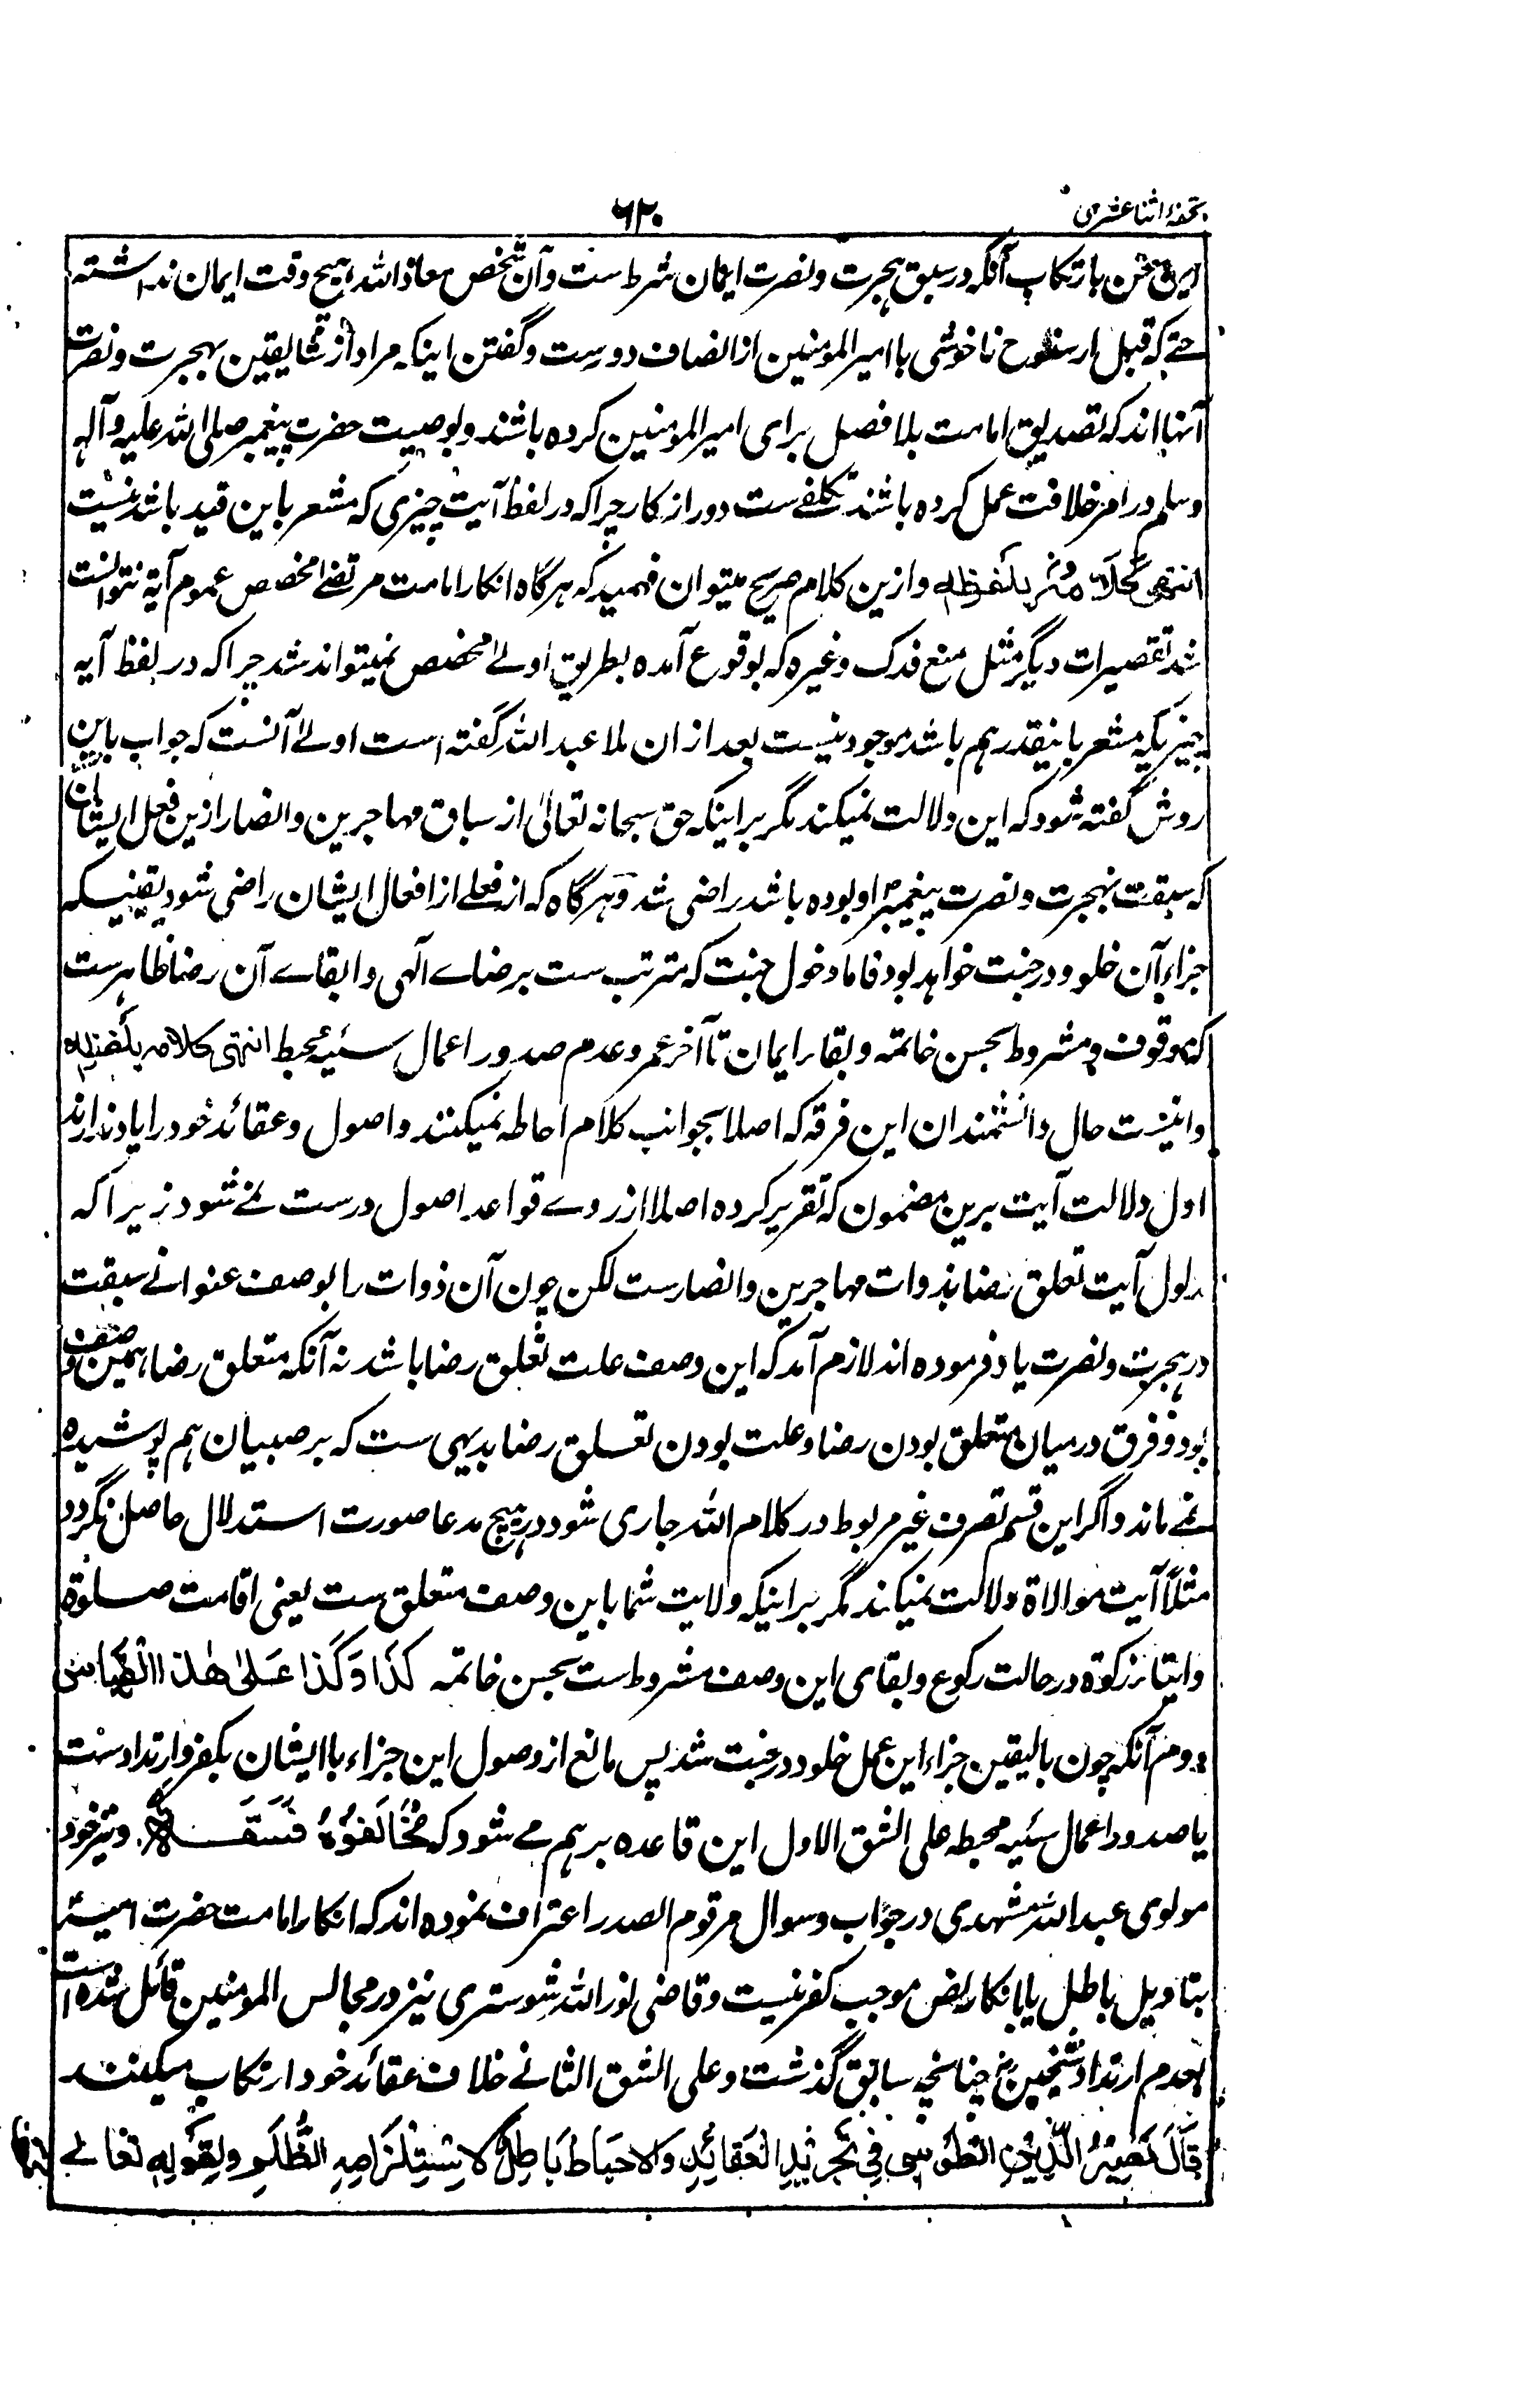 تحفهٔ اثنا عشری
۶۲۰
این سخن بارتکاب آنکه در سبق هجرت و نصرت ایمان شرط ست و آن شخص معاذ الله هیچ وقت ایمان نداشته
حتے که قبل از سنوح ناخوشی با امیر المومنین از انصاف دورست و گفتن اینکه مراد از سابقین بهجرت و نصرت
آنها اند که تصدیق امامت بلا فصل برای امیر المومنین کرده باشند و بوصیت حضرت پیغمبر صلی الله علیه و آله
وسلم در امر خلافت عمل کرده باشند تکلفے ست دور از کار چرا که در لفظ آیت چیزی که مشعر باین قید باشد نیست
انتهی کلامه بلفظه و ازین کلام صریح میتوان فهمید که هرگاه انکار امامت مرتضے مخصص عموم آیة نتوانست
شد تقصیرات دیگر مثل منع فدک وغیره که بوقوع آمده بطریق اولے مخصص نمیتواند شد چرا که در لفظ آیه
چیزیکه مشعر باینقدر هم باشد موجود نیست بعد ازان ملا عبد الله گفته است اولے آنست که جواب باین
روش گفته شود که این دلالت نمیکند مگر بر اینکه حق سبحانه تعالیٰ از سباق مهاجرین و انصار ازین فعل ایشان
که سبقت بهجرت و نصرت پیغمبر او بوده باشد راضی شد و هرگاه که از فعلے از افعال ایشان راضی شود یقینیکه
جزاء آن خلود در جنت خواهد بود فاما دخول جنت که مترتب ست بر رضاے الٰهی و ابقاے آن رضا ظاهرست
که موقوف و مشروط بحسن خاتمه و بقاء ایمان تا آخر عمر و عدم صدور اعمال سیئهٔ محبط انتهی کلامه بلفظه
و اینست حال دانشمندان این فرقه که اصلا بجوانب کلام احاطه نمیکنند و اصول و عقائد خود را یاد ندارند
اول دلالت آیت برین مضمون که تقریر کرده اصلا از روے قواعد اصول درست نمے شود زیرا که
مدلول آیت تعلق رضا بذوات مهاجرین و انصارست لکن چون آن ذوات را بوصف عنوانے سبقت
در هجرت و نصرت یاد فرموده اند لازم آمد که این وصف علت تعلق رضا باشد نه آنکه متعلق رضا همین وصف
بود و فرق درمیان متعلق بودن رضا و علت بودن تعلق رضا بدیهی ست که بر صبیان هم پوشیده
نمے ماند و اگر این قسم تصرف غیر مربوط در کلام الله جاری شود در هیچ مدعا صورت استدلال حاصل نگردد
مثلاً آیت موالاة دلالت نمیکند مگر بر اینکه ولایت شما باین وصف متعلق ست یعنی اقامت صلوة
و ایتاء زکوة در حالت رکوع و بقای این وصف مشروط ست بحسن خاتمه کَذَا وَکَذَا عَلیٰ هٰذَا الْقِیَاسِ
دوم آنکه چون بالیقین جزاء این عمل خلود در جنت شد پس مانع از وصول این جزاء با ایشان بکفر و ارتدادست
یا صدور اعمال سیئه محبطه علی الشق الاول این قاعده برهم مے شود که مُخَالِفُوْهُ فَسَقَةٌ و نیز خود
مولوی عبد الله مشهدی در جواب و سوال مرقوم الصدر اعتراف نموده اند که انکار امامت حضرت امیر
بتاویل باطل یا بانکار نص موجب کفر نیست و قاضی نور الله شوستری نیز در مجالس المومنین قائل شده است
بعدم ارتداد شیخین چنانچه سابق گذشت و علی الشق الثانے خلاف عقائد خود ارتکاب میکنند
قَالَ نَصِیْرُ الدِّیْنِ الطُّوْسِی فِی تَجْرِیْدِ الْعَقَائِدِ وَالاِحْبَاطُ بَاطِلٌ لِاِسْتِلْزَامِهِ الظُّلْمَ وَلِقَوْلِهِ تَعَالٰے